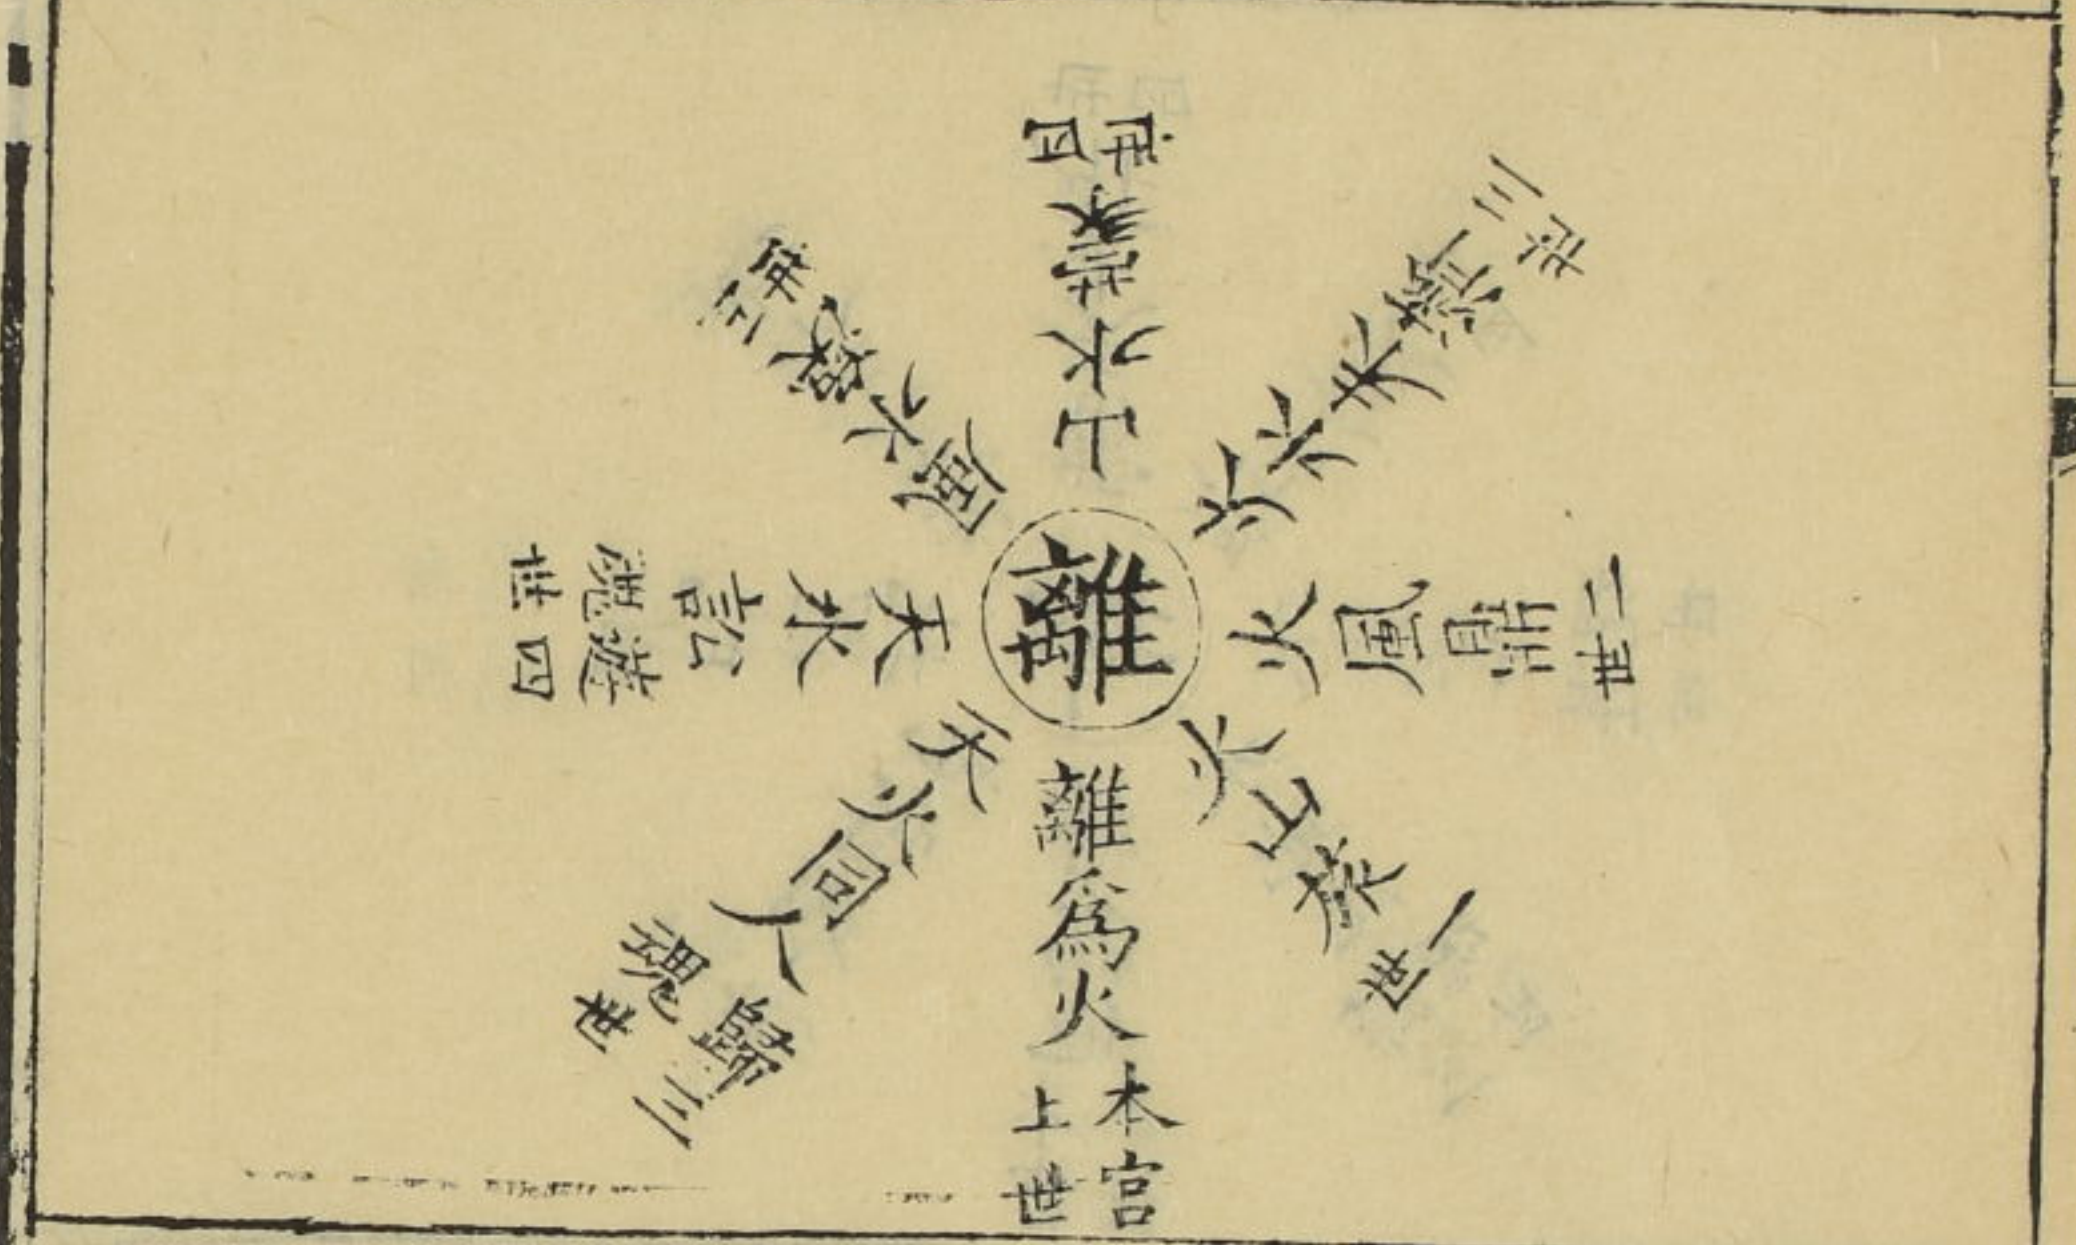 離
離爲火
本宮
上世
火山旅
一世
火風鼎
二世
火水未濟
三世
山水蒙
四世
風水渙
世
天水訟
遊魂
四世
天火同人
歸魂
三世